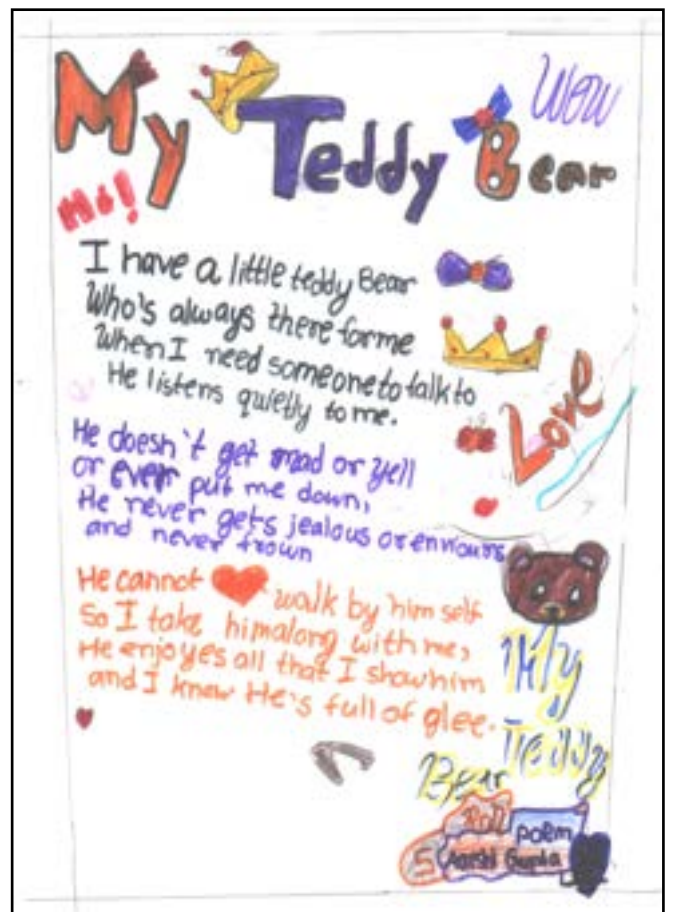 My Teddy Bear
Wow
Hi!
I have a little teddy Bear
Who's always there for me
When I need someone to talk to
He listens quietly to me.
Love
He doesn't get mad or yell
or ever put me down,
He never gets jealous or enviours
and never frown
He cannot walk by him self
So I take him along with me,
He enjoyes all that I show him
and I know He's full of glee.
My
Teddy
Bear
Roll
poem
5
Gupta